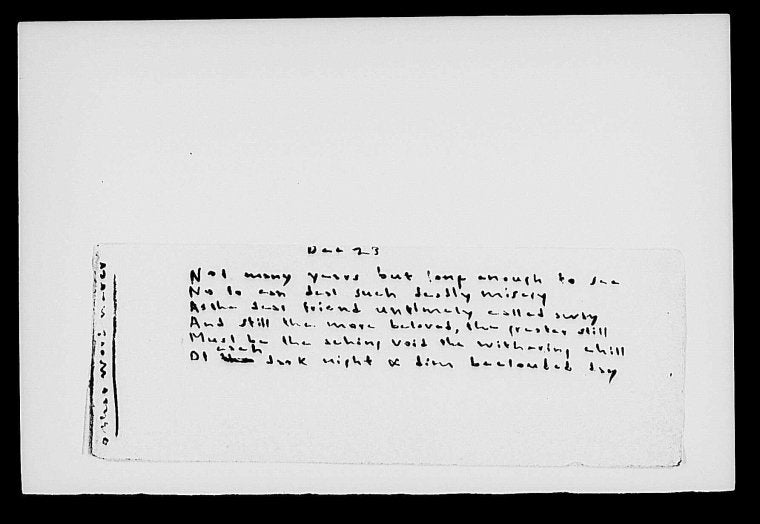 Dec 23
Not many years but long enough to see
No fo can deal such deadly misery
As the dear friend untimely called away
And still the more beloved, the greater still
Must be the aching void the withering chill
each
Of the dark night & dim beclouded day